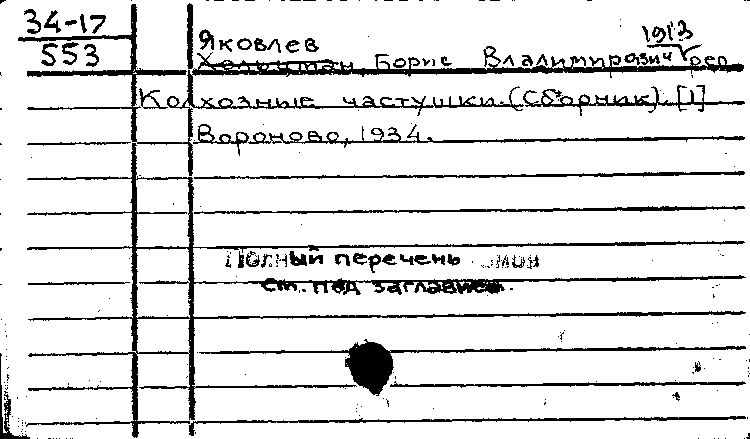 34-17
553
Яковлев
1913
Борис Владимирович ред.
Колхозные частушки. (Сборник). [1]
Вороново, 1934.
Полный перечень томов
см. под заглавием.